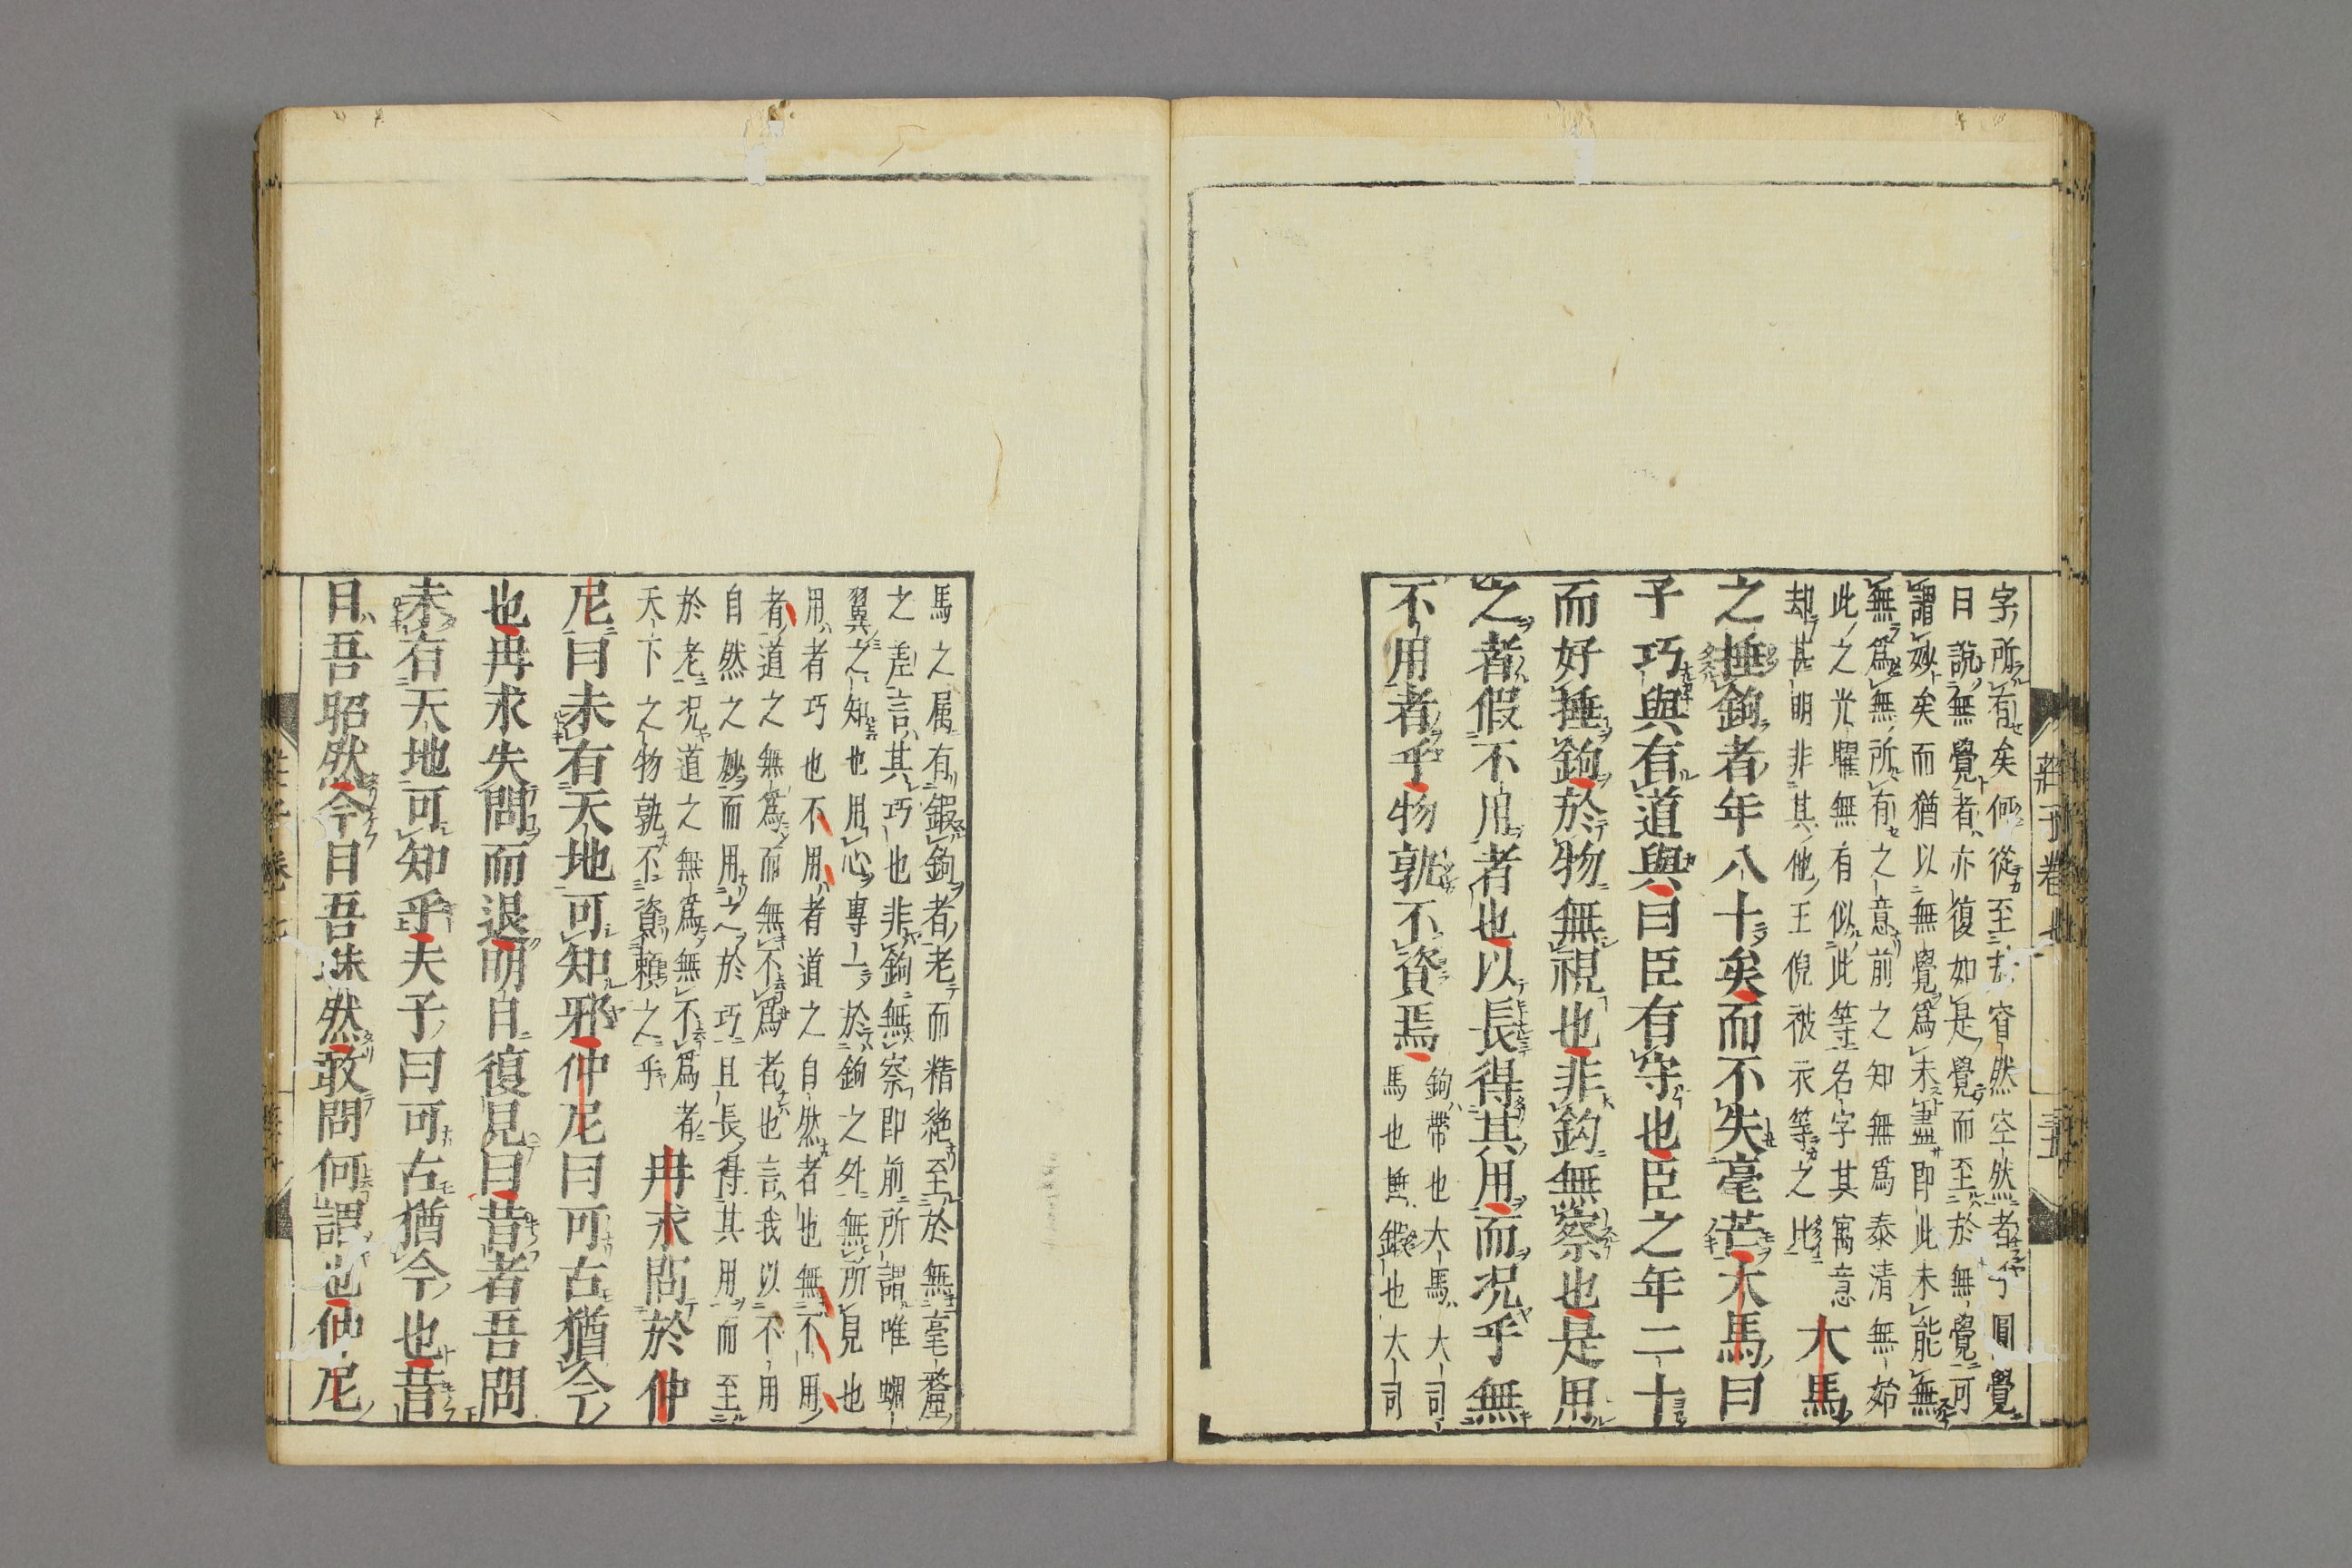 莊子卷七
字所有矣何從至哉窅然空然者圓覺
曰說無覺者亦復如是覺而至於無覺可
謂妙矣而猶以無覺爲未盡即此未能無
無爲無所有之意前之知無爲泰清無始
此之光曜無有似此等名字其寓意
却甚明非其他王倪被衣等之比
大馬
之捶鉤者年八十矣而不失毫芒大馬曰
子巧與有道與曰臣有守也臣之年二十
而好捶鉤於物無視也非鉤無察也是用
之者假不用者也以長得其用而况乎無
不用者乎物孰不資焉
鉤帶也大馬大司
馬也捶鍛也大司
馬之属有鍛鉤者老而精絶至於無毫釐
之差言其巧也非鉤無察即前所謂唯蜩
翼之知也用心專一於鉤之外無所見也
用者巧也不用者道之自然者也無不用
者道之無爲而無不爲者也言我以不用
自然之妙而用之於巧且長得其用而至
於老况道之無爲無不爲者
天下之物孰不資賴之乎
冉求問於仲
尼曰未有天地可知邪仲尼曰可古猶今
也冉求失問而退明日復見曰昔者吾問
未有天地可知乎夫子曰可古猶今也昔
日吾昭然今日吾昧然敢問何謂也仲尼
莊子卷七